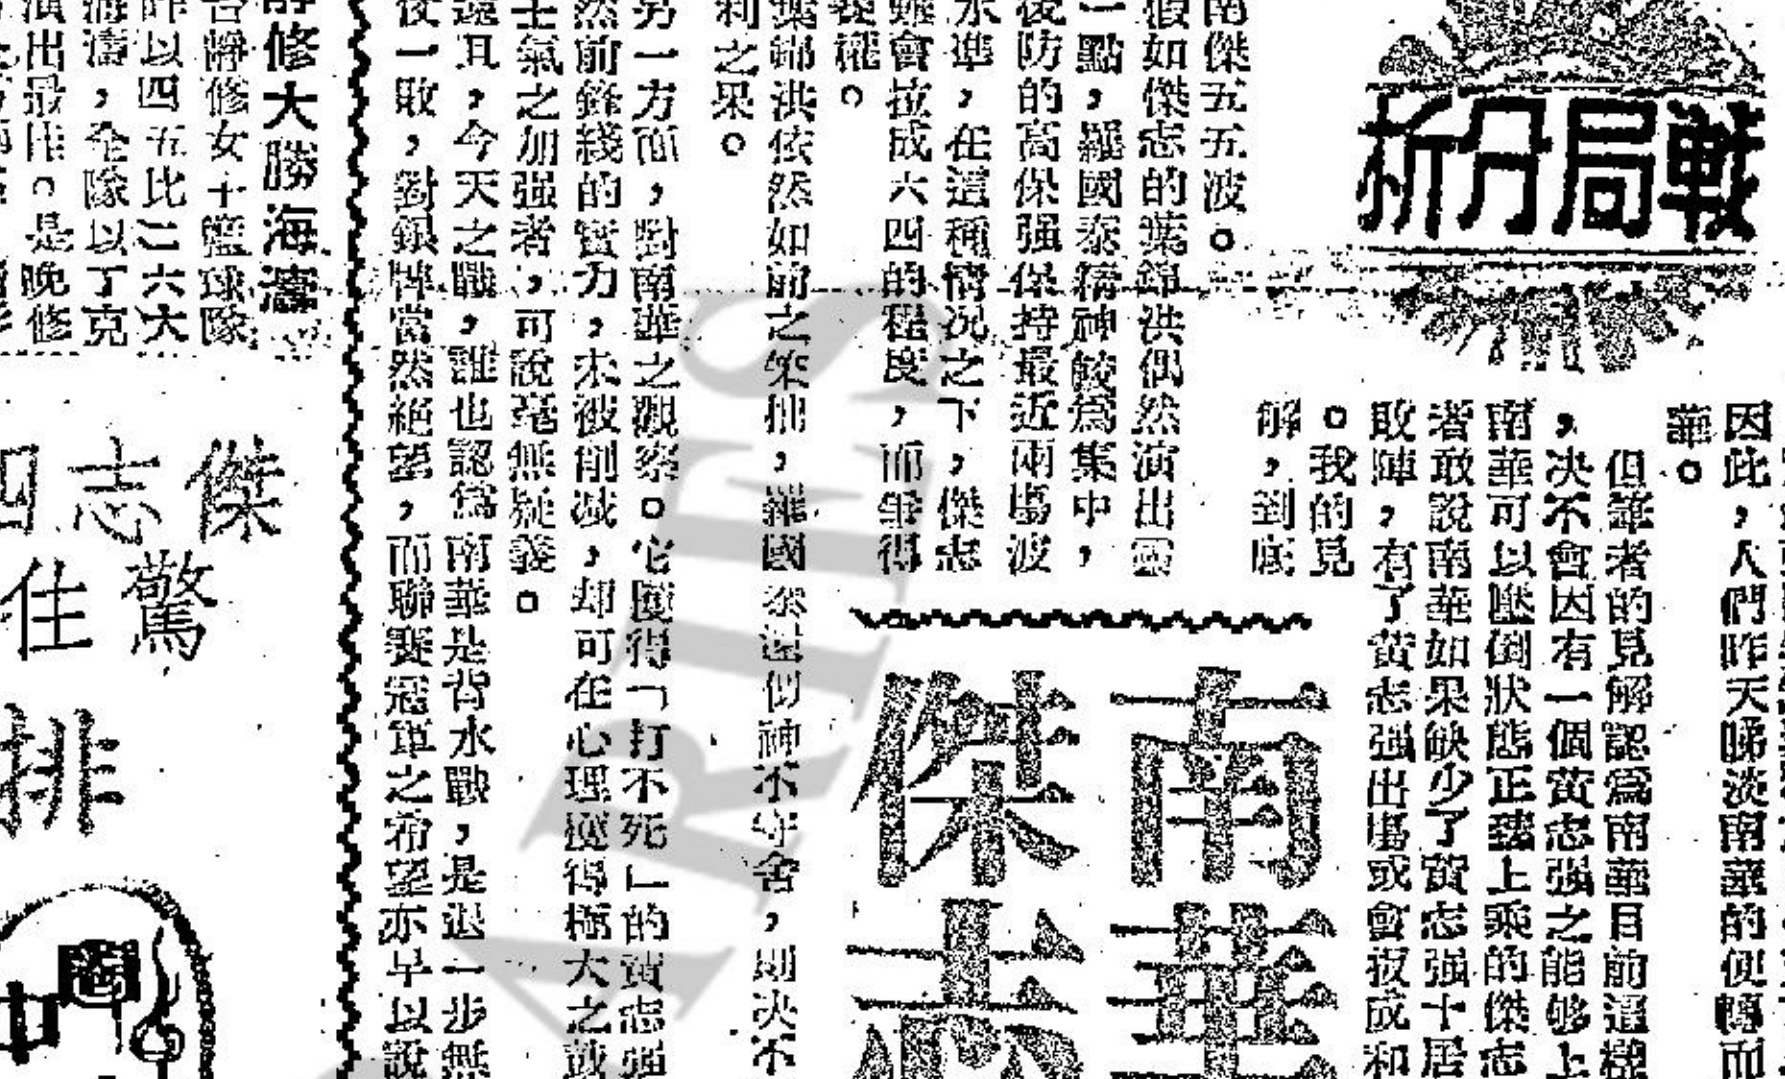 戰局分析
因此，人們昨天睇淡南華的便轉而
華。
但筆者的見解認爲南華目前這樣
，决不會因有一個黃志强之能够上
南華可以壓倒狀態正臻上乘的傑志
者敢說南華如果缺少了黃志强十居
敗陣，有了黃志强出塲或會扳成和
。我的見
解，到底
南傑五五波。
假如傑志的葉錦洪偶然演出靈
一點，羅國泰精神爲集中，
後防的高保强保持最近兩塲波
水準，在這種情况之下，傑志
雖會拉成六四的程度，而得
權。
葉錦洪依然如前之笨拙，羅國泰還似神不守舍，則决不
利之果。
南華
傑志
另一方面，對南華之觀察。它獲得「打不死」的黃志强
然前鋒綫的實力，未被削减，却可在心理獲得極大之鼓
士氣之加强者，可說毫無疑義。
遠耳，今天之戰，誰也認爲南華是背水戰，是退一步無
後一敗，對銀牌當然絕望，而聯賽冠軍之希望亦早以說
靜修大勝海濤
靜修女十籃球隊
昨以四五比二六大
海濤，全隊以丁克
演出最佳。是晚修
傑志四
驚住
排
ARIES